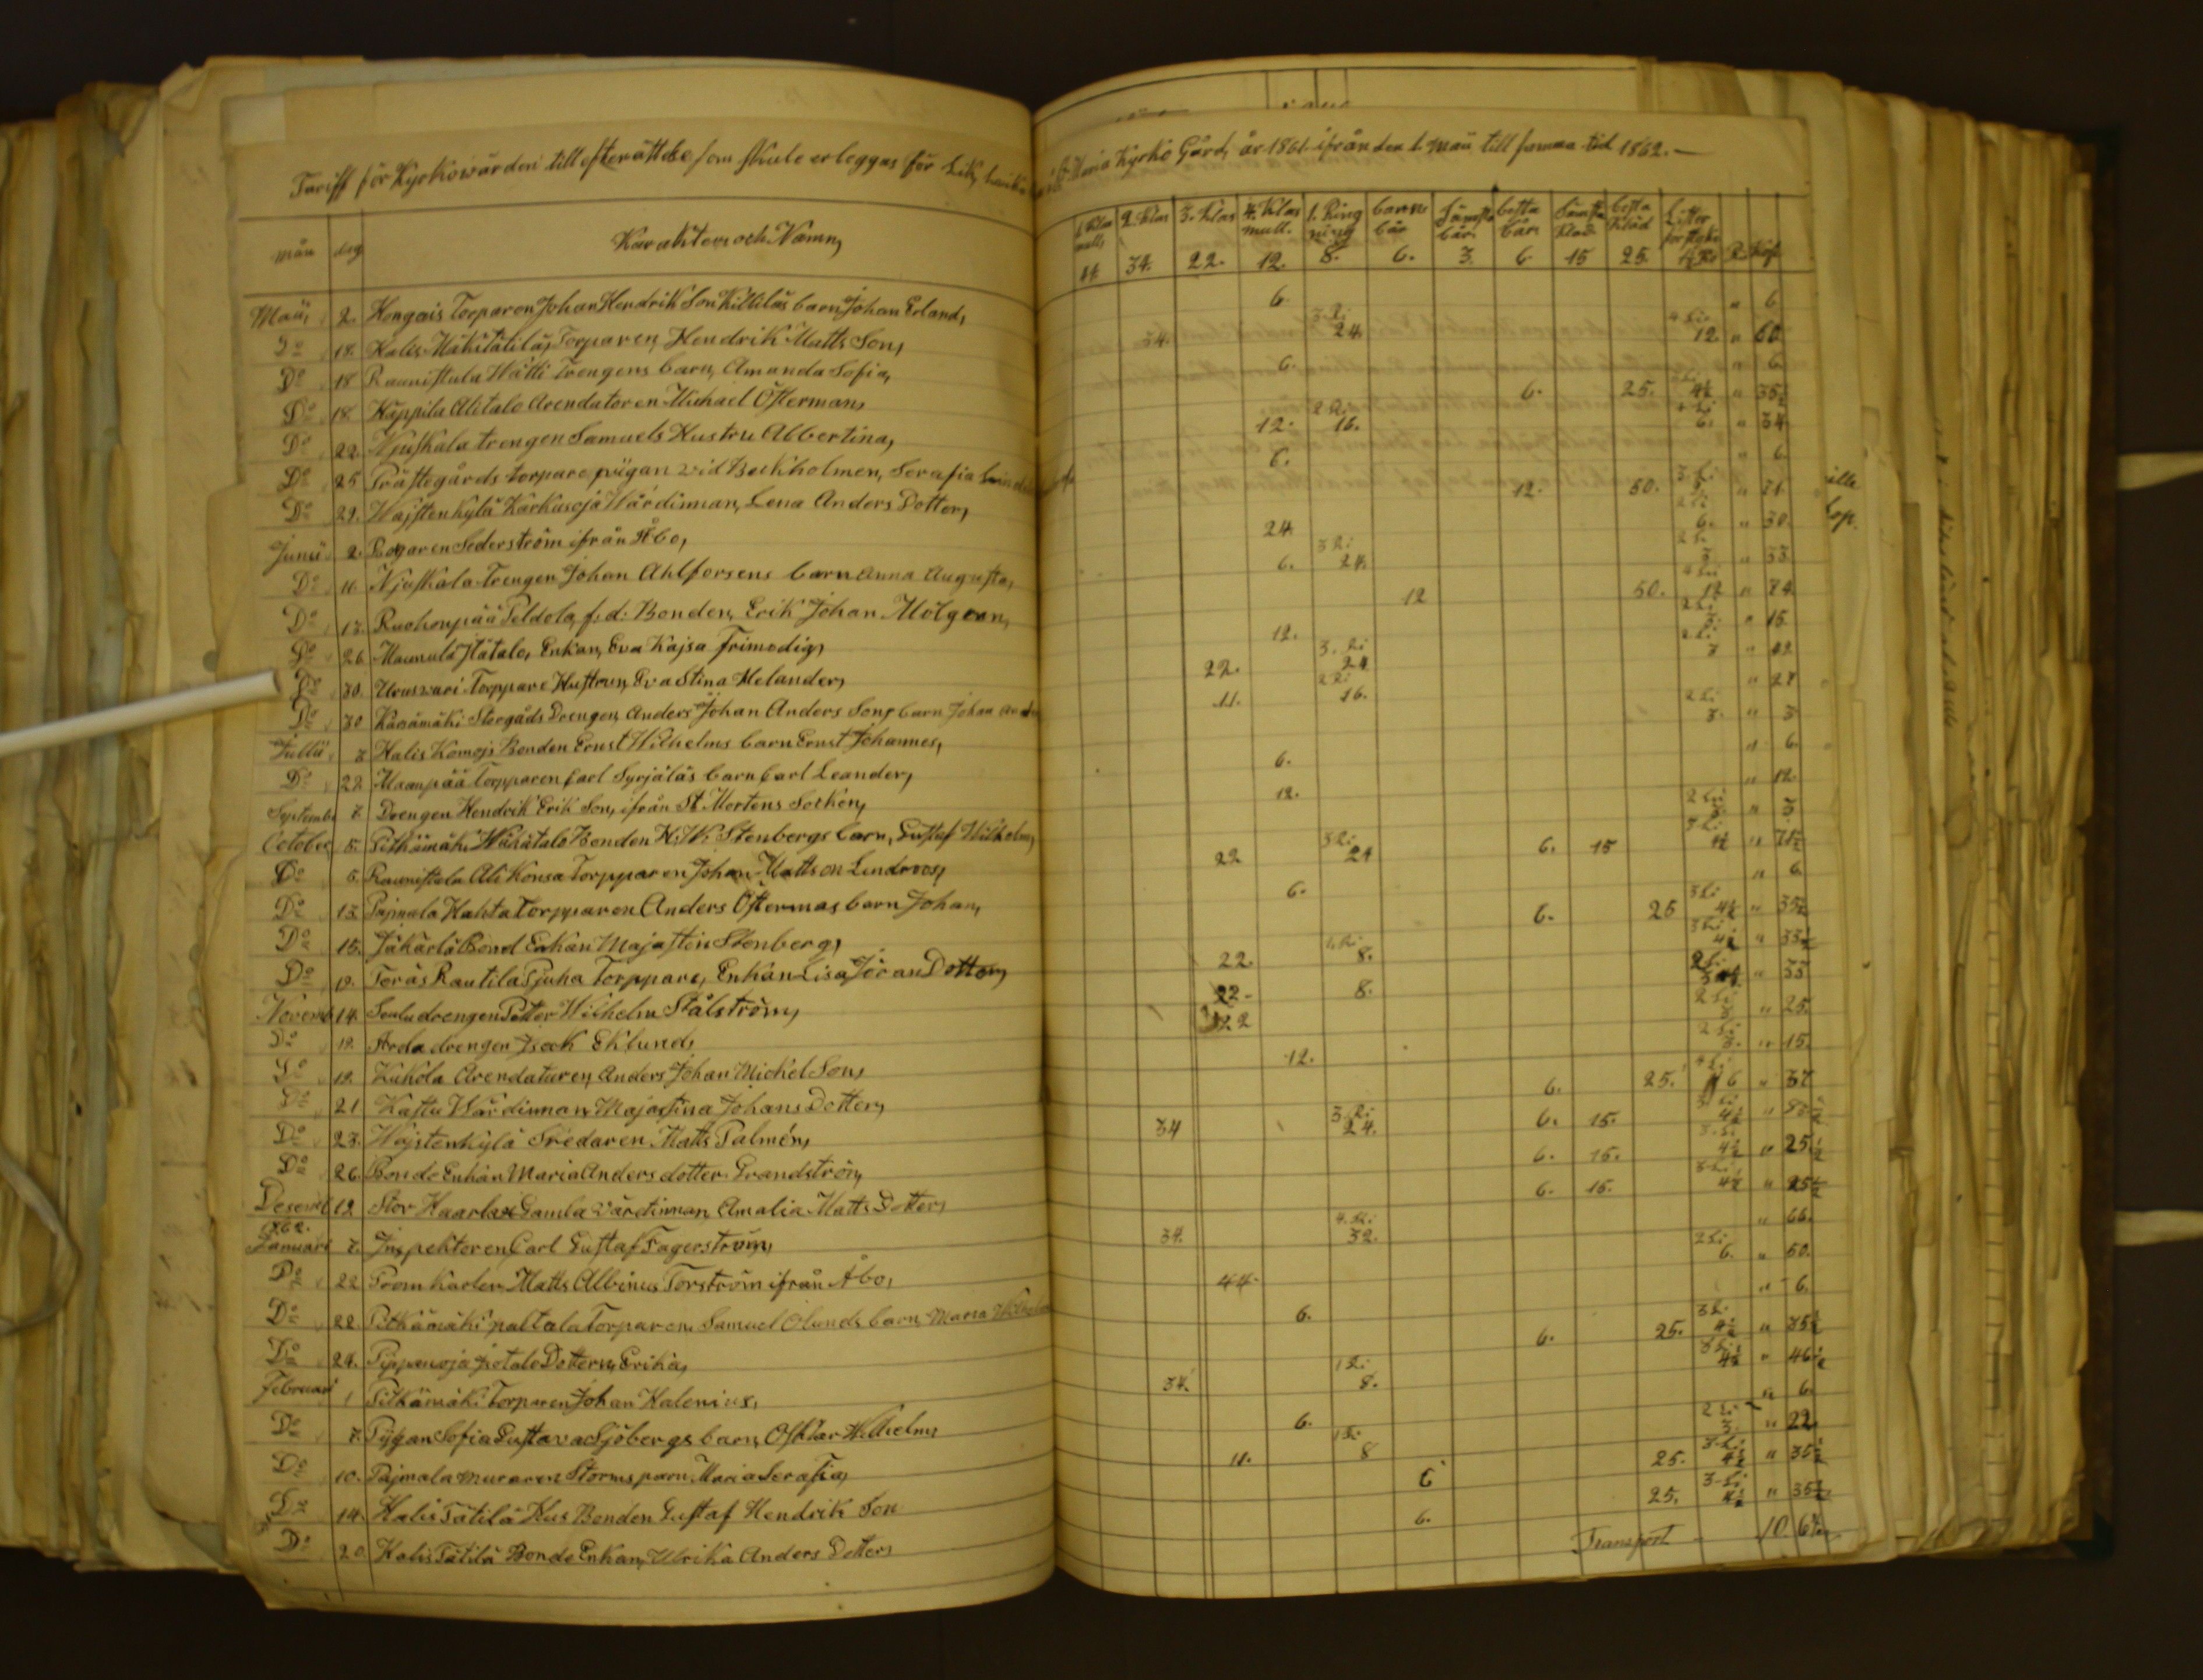 Tariff för Kyrkowärden till efterättelse som skule erleggas för Lik, S:t Maria Kyrko Gård, år 1861 ifrån den 1. Maii till samma tid 1862.—
mån dag Karakteren och Namn, 1 Klas mull, 2. Klas 3. Klas 4. Klas mull. 1. Ring ning barns bår Sämsta bår. besta bår. Sämsta Klad besta Kläd R. Kop.
44. 34. 22. 12. 8. 6. 3. 6. 15 25.
Maii, 2. Kongais Torparen Johan Hendrik Son Killiläs barn Johan Erland, 6. " 6
Do 18. Halis Mäkitätilä, Torparen, Hendrik Matts Son, 34. 3 Li 24. 4 Li 12. " 60
Do 18 Raunistula Wätti Trengens barn, Amanda Sofia, 6. " 6.
Do 18. Käppila Alitalo Arendatoren Michael Österman, 6. 25. 4½ " 35½
Do 22. Njuskala trengen Samuels Hustru Albertina, 12. 2 Li 16. 6. " 34
Do 25 Prästegårds torpare pigan vid Bockholmen, Serafia 6. " 6.
Do 29. Wajstenkylä Karkusoja Wärdinnan, Lena Anders Dotter, 12. 50. 3 Li " 71.
Junii 2. Sederström ifrån Åbo, 24. 6. " 30.
Do 11. Njuskala Trengen Johan Ahlforsens barn Anna Augusta, 6. 3 Li 24. 2 Li 3 " 33.
Do 13. Ruohonpää Peldola, f:d: Bonden, Erik Johan Mölgvan, 12 50. 4 Li 12 " 74.
Do 26. Maunula Jtätalo, Enkan, Eva Kajsa Frimodig, 12. 2 Li 3. " 15.
Do 30. Urusvuori Torppare Hustrun, Eva Stina Helander, 22. 3. Li 24 2 Li 3 "
Do 30 Kärsämäki Storgåds Drengen, Anders Johan Anders Sons barn Johan 11. 2 Li 16. " 27
Jullii 3 Halis Komojs Bonden Ernst Wilhelms barn Ernst Johannes, 2 Li 3. " 3
Do 22. Maanpää Torpparen Carl Syrjäläs barn Carl Leander, 6. " 6.
Septembr 7. Drengen Hendrik Erik Son, ifrån St Mortens Socken, 12. " 12.
October 5. Pitkämäki Wähätalo Bonden H: W: Stenbergs barn, Gustaf Wilhelm, 2 Li 3 " 3
Do 5. Raunistula Ali Konsa Torpparen Johan Mattson Lindroos, 22 3 Li 24 6. 15 3 Li 4½ " 71½
Do 13. Pajmala Hakta Torpparen Anders Östermas barn Johan, 6. " 6.
Do 15. Jäkärlä Bond Enkan Maja Stin Stenberg, 6. 25 3 Li 4½ " 35½
Do 19. Teräs Rautila Pjuha Torppare, Enkan Lisa Jöran Dotter, 22. 1. Li 8. 3 Li 4½ "
Novemb 14. drengen Petter Wilhelm Stålström, 22- 8. 2 Li " 33
Do 19. Arola drengen Jsack Eklund, 22 2 Li 3 " 25.
Do 19. Kukola Arendatoren, Anders Johan Michel Son, 12. 2 Li 3. " 15.
Do 21 Kastu Wärdinnan, Maja Stina Johans Dotter, 6. 25. 4 Li 6 " 37
Do 23. Wajstenkylä Sredaren Matts Palmén, 34 3 Li 24. 6. 15. 3 Li 4½ "
Do 26. Bonde Enkan Maria Anders dotter Grandström, 6. 15. 3 Li 4½ " 25½
Desemb 12 Stor Haarlax Gamla wärdinnan, Amalia Matts Dotter, 6. 15. 3 Li 4½ " 25½
1862.
Januari 7. Jnspektoren Carl Gustaf Fagerström, 34. 4. Li 32. " 66.
Do 22 Matts Albinus Torström ifrån Åbo, 44. 2 Li 6. " 50.
Do 22. Pitkämäki paltala Torparen Samuel Ölunds barn, Maria 6. " 6.
Do 24. Pippanoja Jsotalo Dottern, Erika, 6. 25. 3 Li 4½ " 35½
Februari 1 Pitkämäki Torparen Johan Kalenius, 34. 1 Li 8. 3 Li 4½ " 46½
Do 7. Pigan Sofia Gustava Sjöbergs barn, Oskar Wilhelm, 6. " 6.
Do 10. Pajmala muraren Storms Maria Serafia, 11. 1 Li 8 2 Li 3. " 22.
Do 14. Halis Tätilä Hus Bonden Gustaf Hendrik Son 6 25. 3 Li 4½ " 35½
Do 20 Halis Tätilä Bonde Enkan, Ulrika Anders Dotter, 6. 25. 3 Li 4½ " 35½
Transport - 10